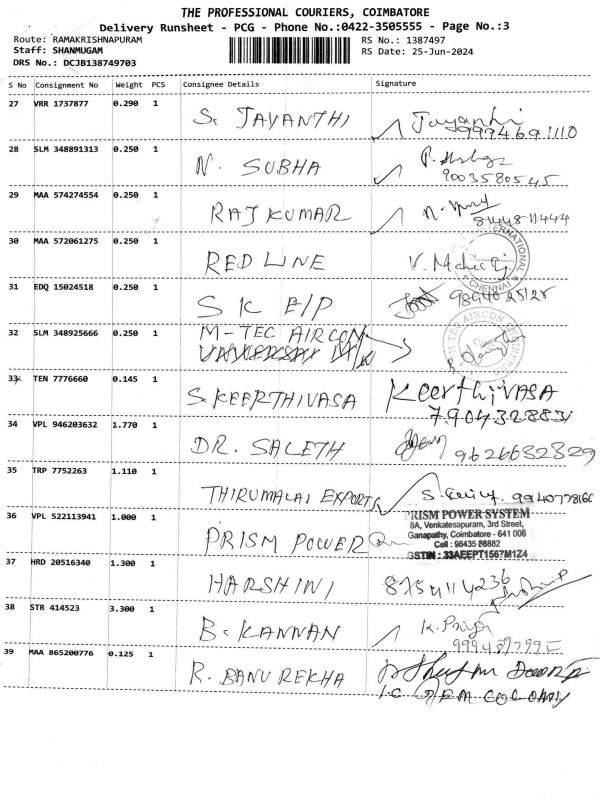 THE PROFESSIONAL COURIERS, COIMBATORE
Delivery Runsheet - PCG - Phone No.:0422-3505555 - Page No.:3
Route: RAMAKRISHNAPURAM RS No.: 1387497
Staff: SHANMUGAM RS Date: 25-Jun-2024
DRS No.: DCJB138749703
S No Consignment No Weight PCS Consignee Details Signature
27 VRR 1737877 0.290 1 S. JAYANTHI Jayanthi
9994691110
28 SLM 348891313 0.250 1 N. SUBHA
9003580545
29 MAA 574274554 0.250 1 RAJ KUMAR
8144811444
30 MAA 572061275 0.250 1 RED LINE V.
INTERNATIONAL
CHENNAI
31 EDQ 15024518 0.250 1 S K E/P
32 SLM 348925666 0.250 1 M-TEC AIRCON
33 TEN 7776660 0.145 1 S. KEERTHIVASA KeerthiVASA
7904328831
34 VPL 946203632 1.770 1 DR. SALETH 9626632829
35 TRP 7752263 1.110 1 THIRUMALAI EXPORTS S.
36 VPL 522113941 1.000 1 PRISM POWER
PRISM POWER SYSTEM
8A, Venkatesapuram, 3rd Street,
Ganapathy, Coimbatore - 641 006
Cell : 98435 88882
GSTIN : 33AEEPT1567M1Z4
37 HRD 20516340 1.300 1 HARSHINI 8754114236
38 STR 414523 3.300 1 B. KANNAN K. Priya
39 MAA 865200776 0.125 1 R. BANU REKHA